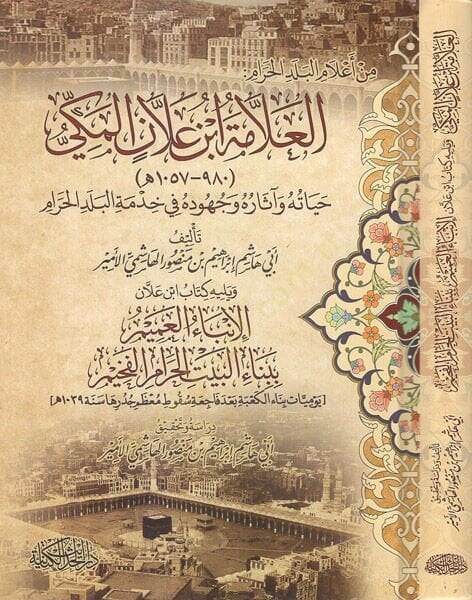 من أعلام البلد الحرام:
العلامة ابن علان المكي
(٩٨٠-١٠٥٧هـ)
حياته وآثاره وجهوده في خدمة البلد الحرام
تأليف
أبي هاشم إبراهيم بن منصور الهاشمي الأمير
ويليه كتاب ابن علان
الإنباء العميم
ببناء البيت الحرام الفخيم
[يوميات بناء الكعبة بعد فاجعة سقوط معظم جدرها سنة ١٠٣٩هـ]
دراسة وتحقيق
أبي هاشم إبراهيم بن منصور الهاشمي الأمير
العلامة ابن علان المكي
ويليه كتاب ابن علان
الإنباء العميم ببناء البيت الحرام الفخيم
تأليف ودراسة وتحقيق
أبي هاشم إبراهيم بن منصور الهاشمي الأمير